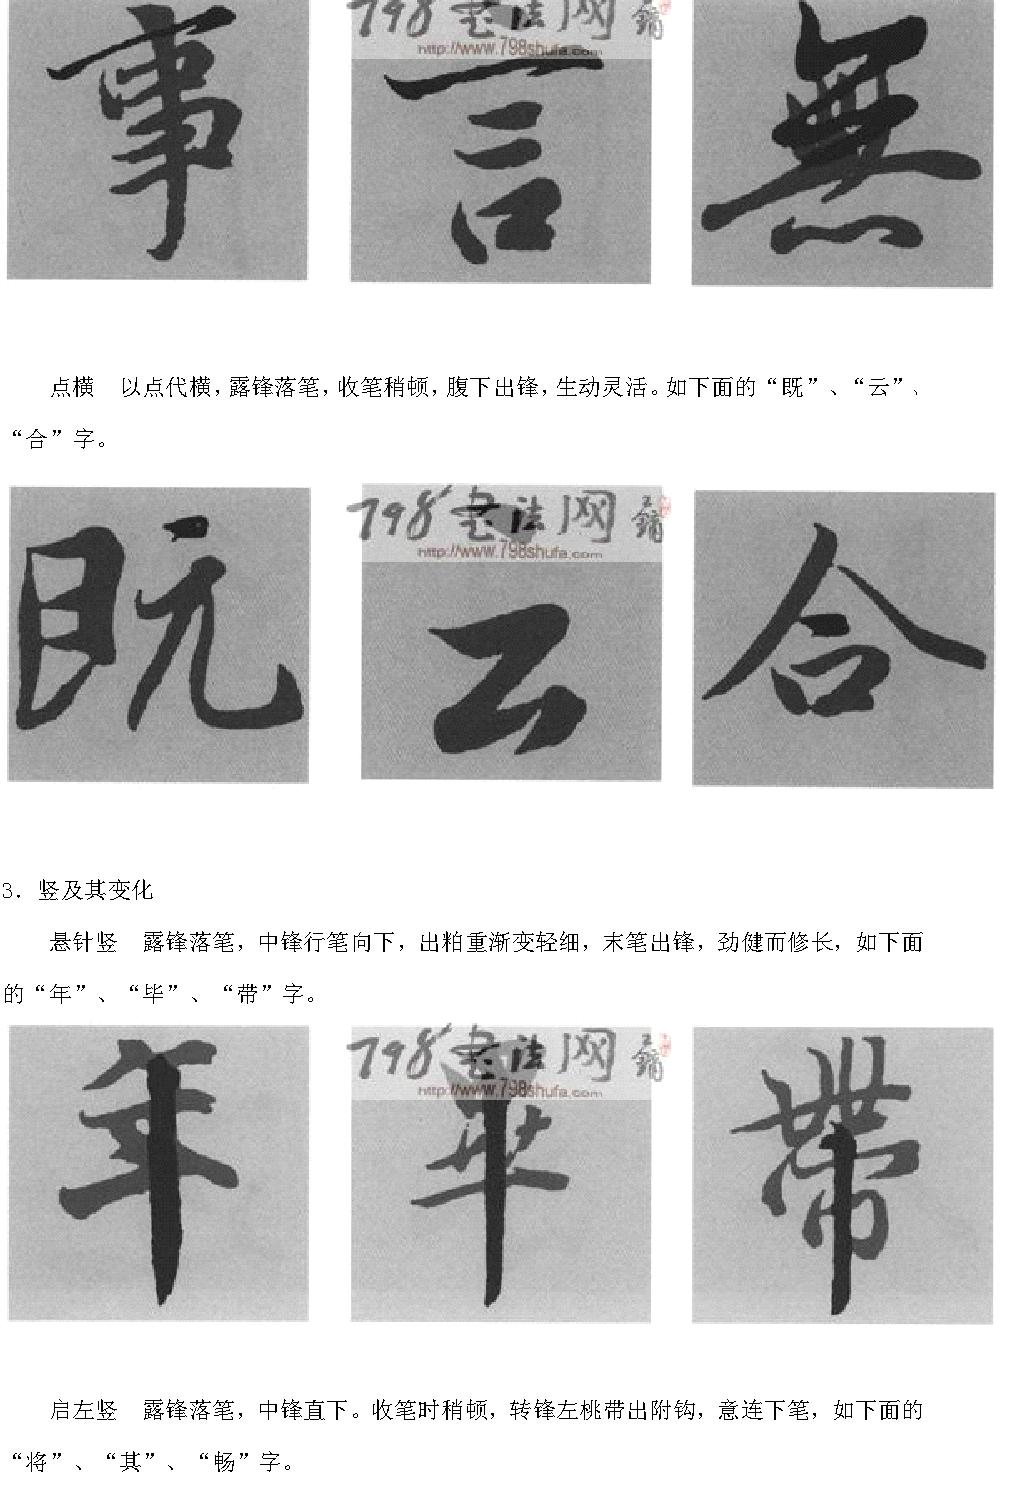 798书法网
http://www.798shufa.com
事 言 無
点横　以点代横，露锋落笔，收笔稍顿，腹下出锋，生动灵活。如下面的“既”、“云”、
“合”字。
798书法网
http://www.798shufa.com
既 云 合
3．竖及其变化
悬针竖　露锋落笔，中锋行笔向下，出粕重渐变轻细，末笔出锋，劲健而修长，如下面
的“年”、“毕”、“带”字。
798书法网
http://www.798shufa.com
年 畢 帶
启左竖　露锋落笔，中锋直下。收笔时稍顿，转锋左桃带出附钩，意连下笔，如下面的
“将”、“其”、“畅”字。